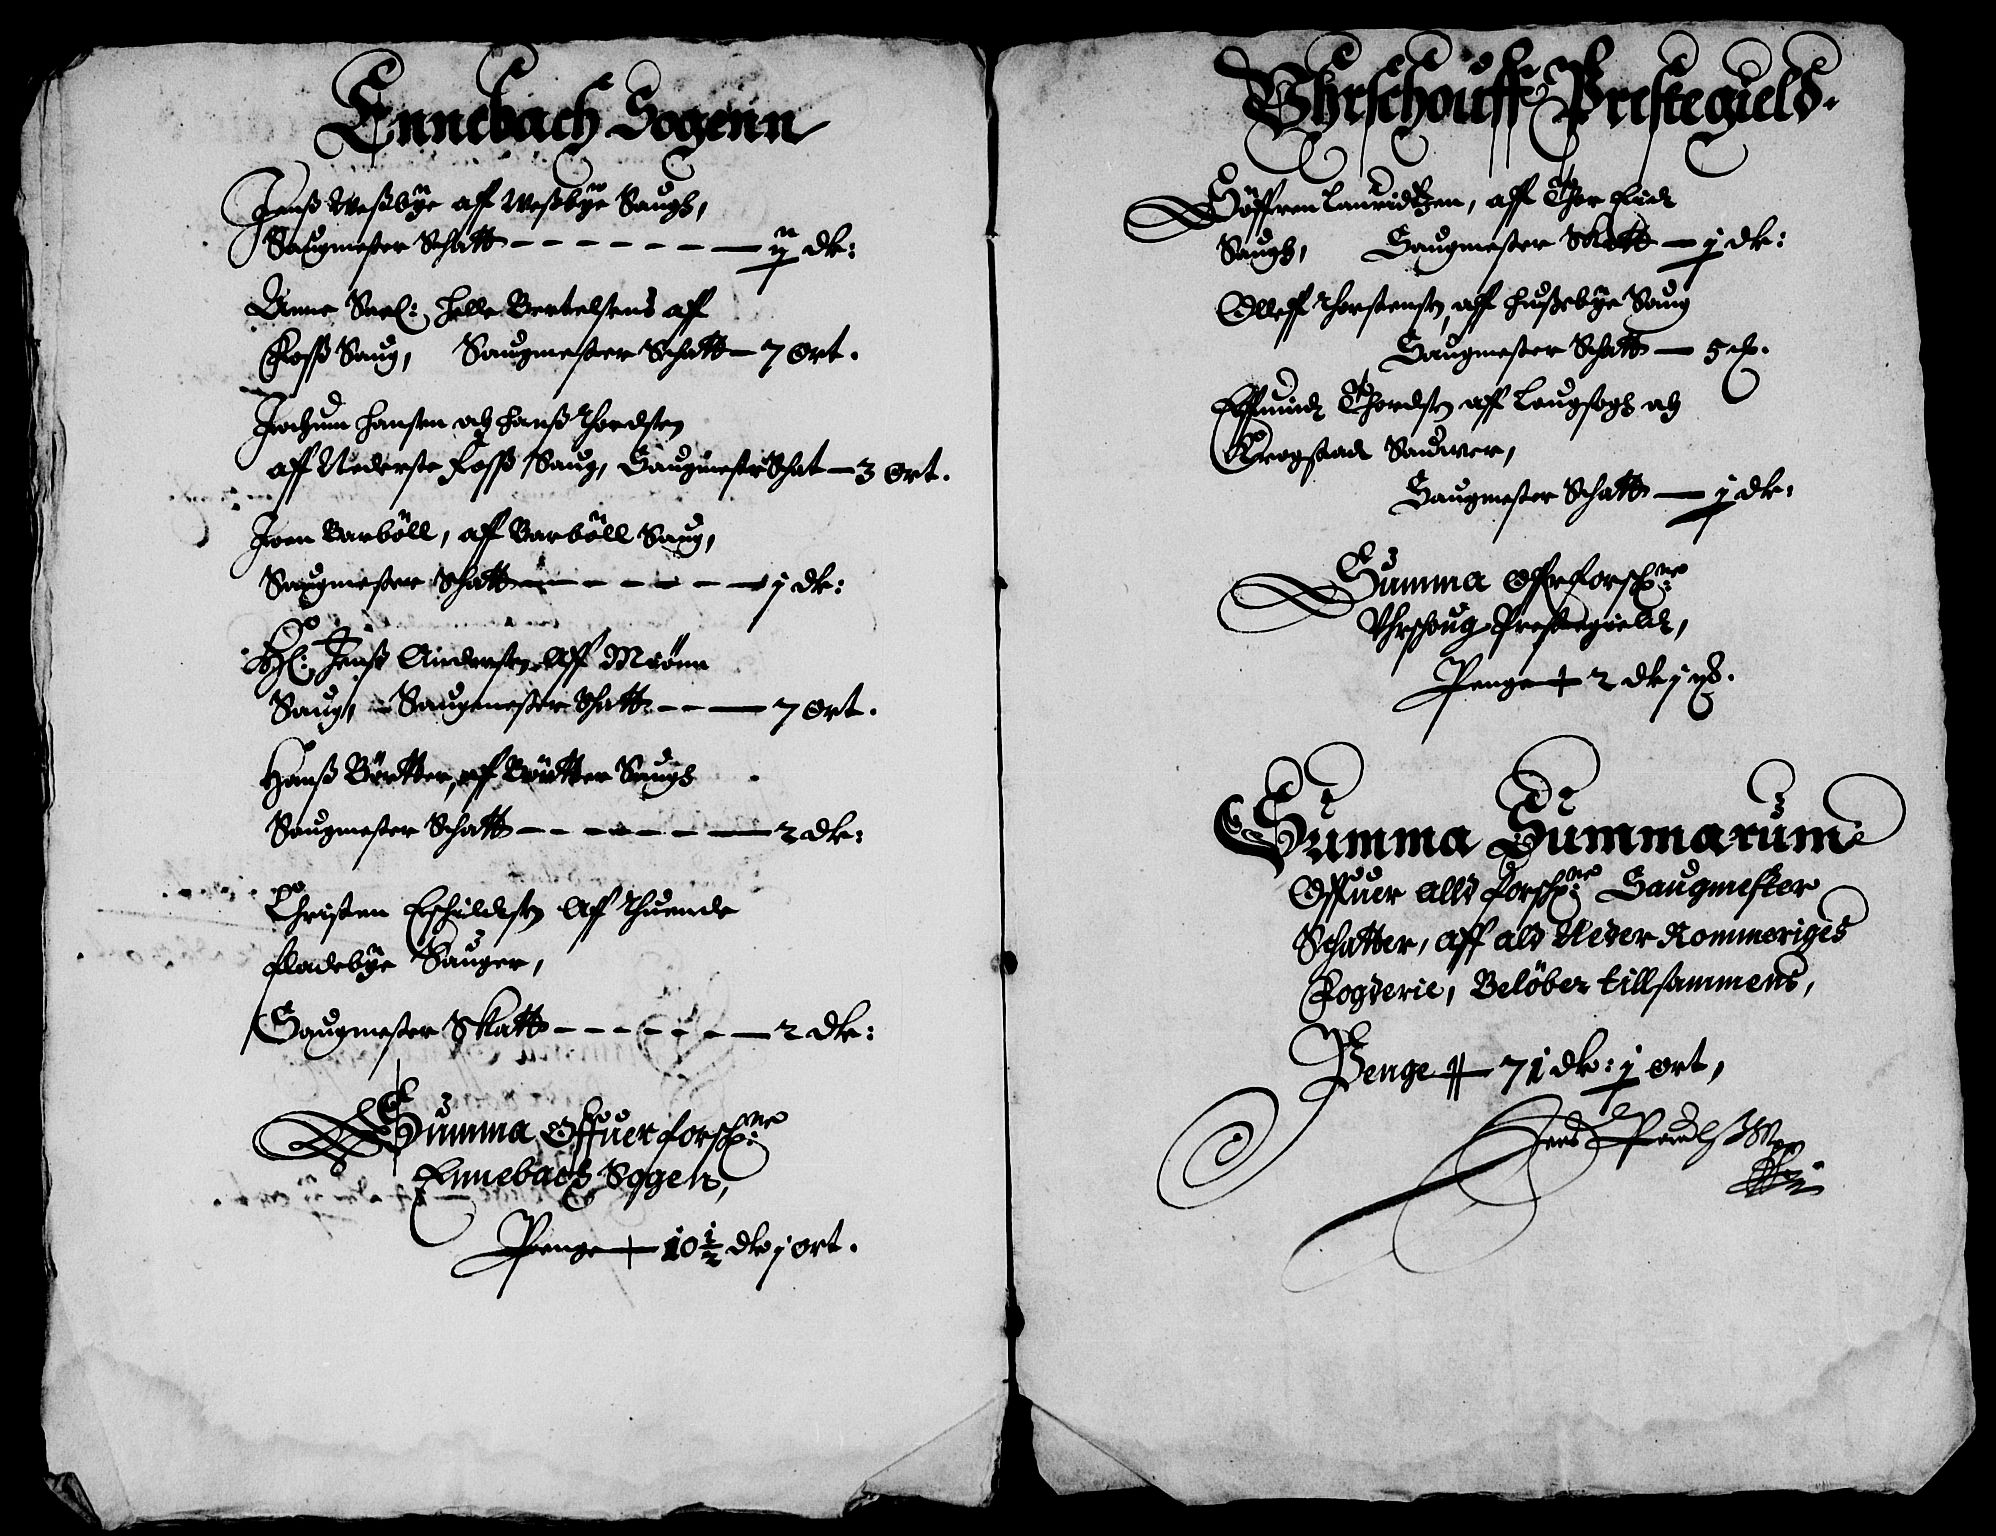 Ennebach Sogenn
Jenß Weßbÿe aff Weßbÿe Saugh,
Saugmester Schatt - - - - - - - ij dlr:
Anne Seel: Helle Bertelsens aff
Foss Saug, Saugmester Schatt - 7 Ort.
Jochum Hansen och Hanß Thordsen
aff Nederste Foss Saug, Saugmester Schat - 3 Ort.
Joen Barböll, aff Barböll Saug,
Saugmester Schatt - - - - - - - j dlr:
H: Jenß Andersen aff
Saug, Saugmester Schatt - - - 7 Ort.
Hanß Börtter, aff Börtter Saugh
Saugmester Schatt - - - - - - - 2 dlr:
Christen Eschildsen Aff Thuende
Fladebÿe Sauger,
Saugmester Skatt - - - - - - - 2 dlr:
Summa Offuer forschne:
Ennebach Sogen,
Penge - 10 1/2 dlr j ort.
Vhrschouff Prestegield.
Söffren Lauridtzen, aff
Saugh, Saugmester Skatt - j dlr:
Olleff Thorstensen, aff Hußebÿe Saug
Saugmester Schatt - 5
Thordsen aff Langsogh och
Krogstad Saugver,
Saugmester Schatt - j dlr:
Summa Offr forschne:
Vhrschoug Prestegield,
Penge - 2 dlr j
Summa Summarum
Offuer alld forschne: Saugmester
Schatter, aff ald Neder Rommeriges
Fogderie, Belöber tillsammens,
Penge - 71 dlr: j ort,